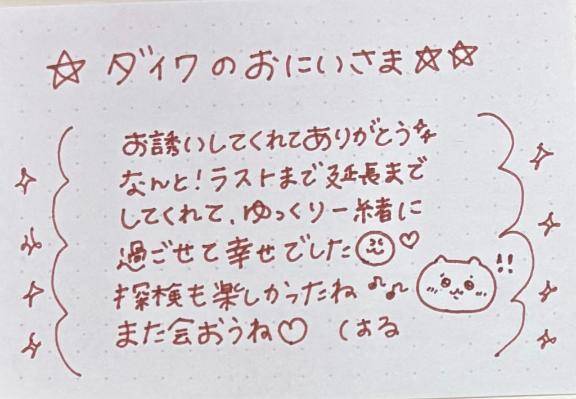 ☆ ダイワのおにいさま☆☆
お誘いしてくれてありがとう
なんと！ラストまで延長まで
してくれて、ゆっくり一緒に
過ごせて幸せでした♡
探検も楽しかったね ♪♫ !!
また会おうね♡ はる